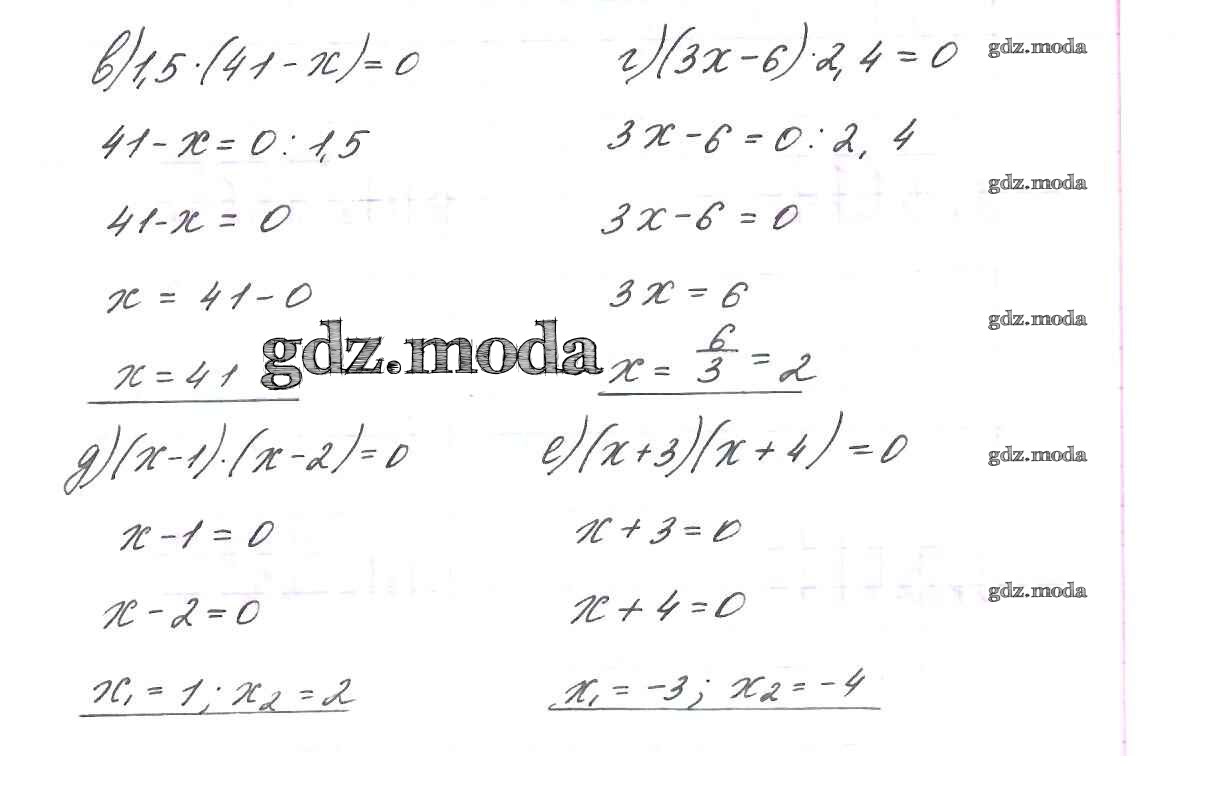 в) 1,5·(41-x)=0
41-x=0:1,5
41-x=0
x=41-0
x=41
г) (3x-6)·2,4=0
3x-6=0:2,4
3x-6=0
3x=6
x=6/3=2
gdz.moda
д) (x-1)·(x-2)=0
x-1=0
x-2=0
x₁=1; x₂=2
е) (x+3)(x+4)=0
x+3=0
x+4=0
x₁=-3; x₂=-4
gdz.moda
gdz.moda
gdz.moda
gdz.moda
gdz.moda